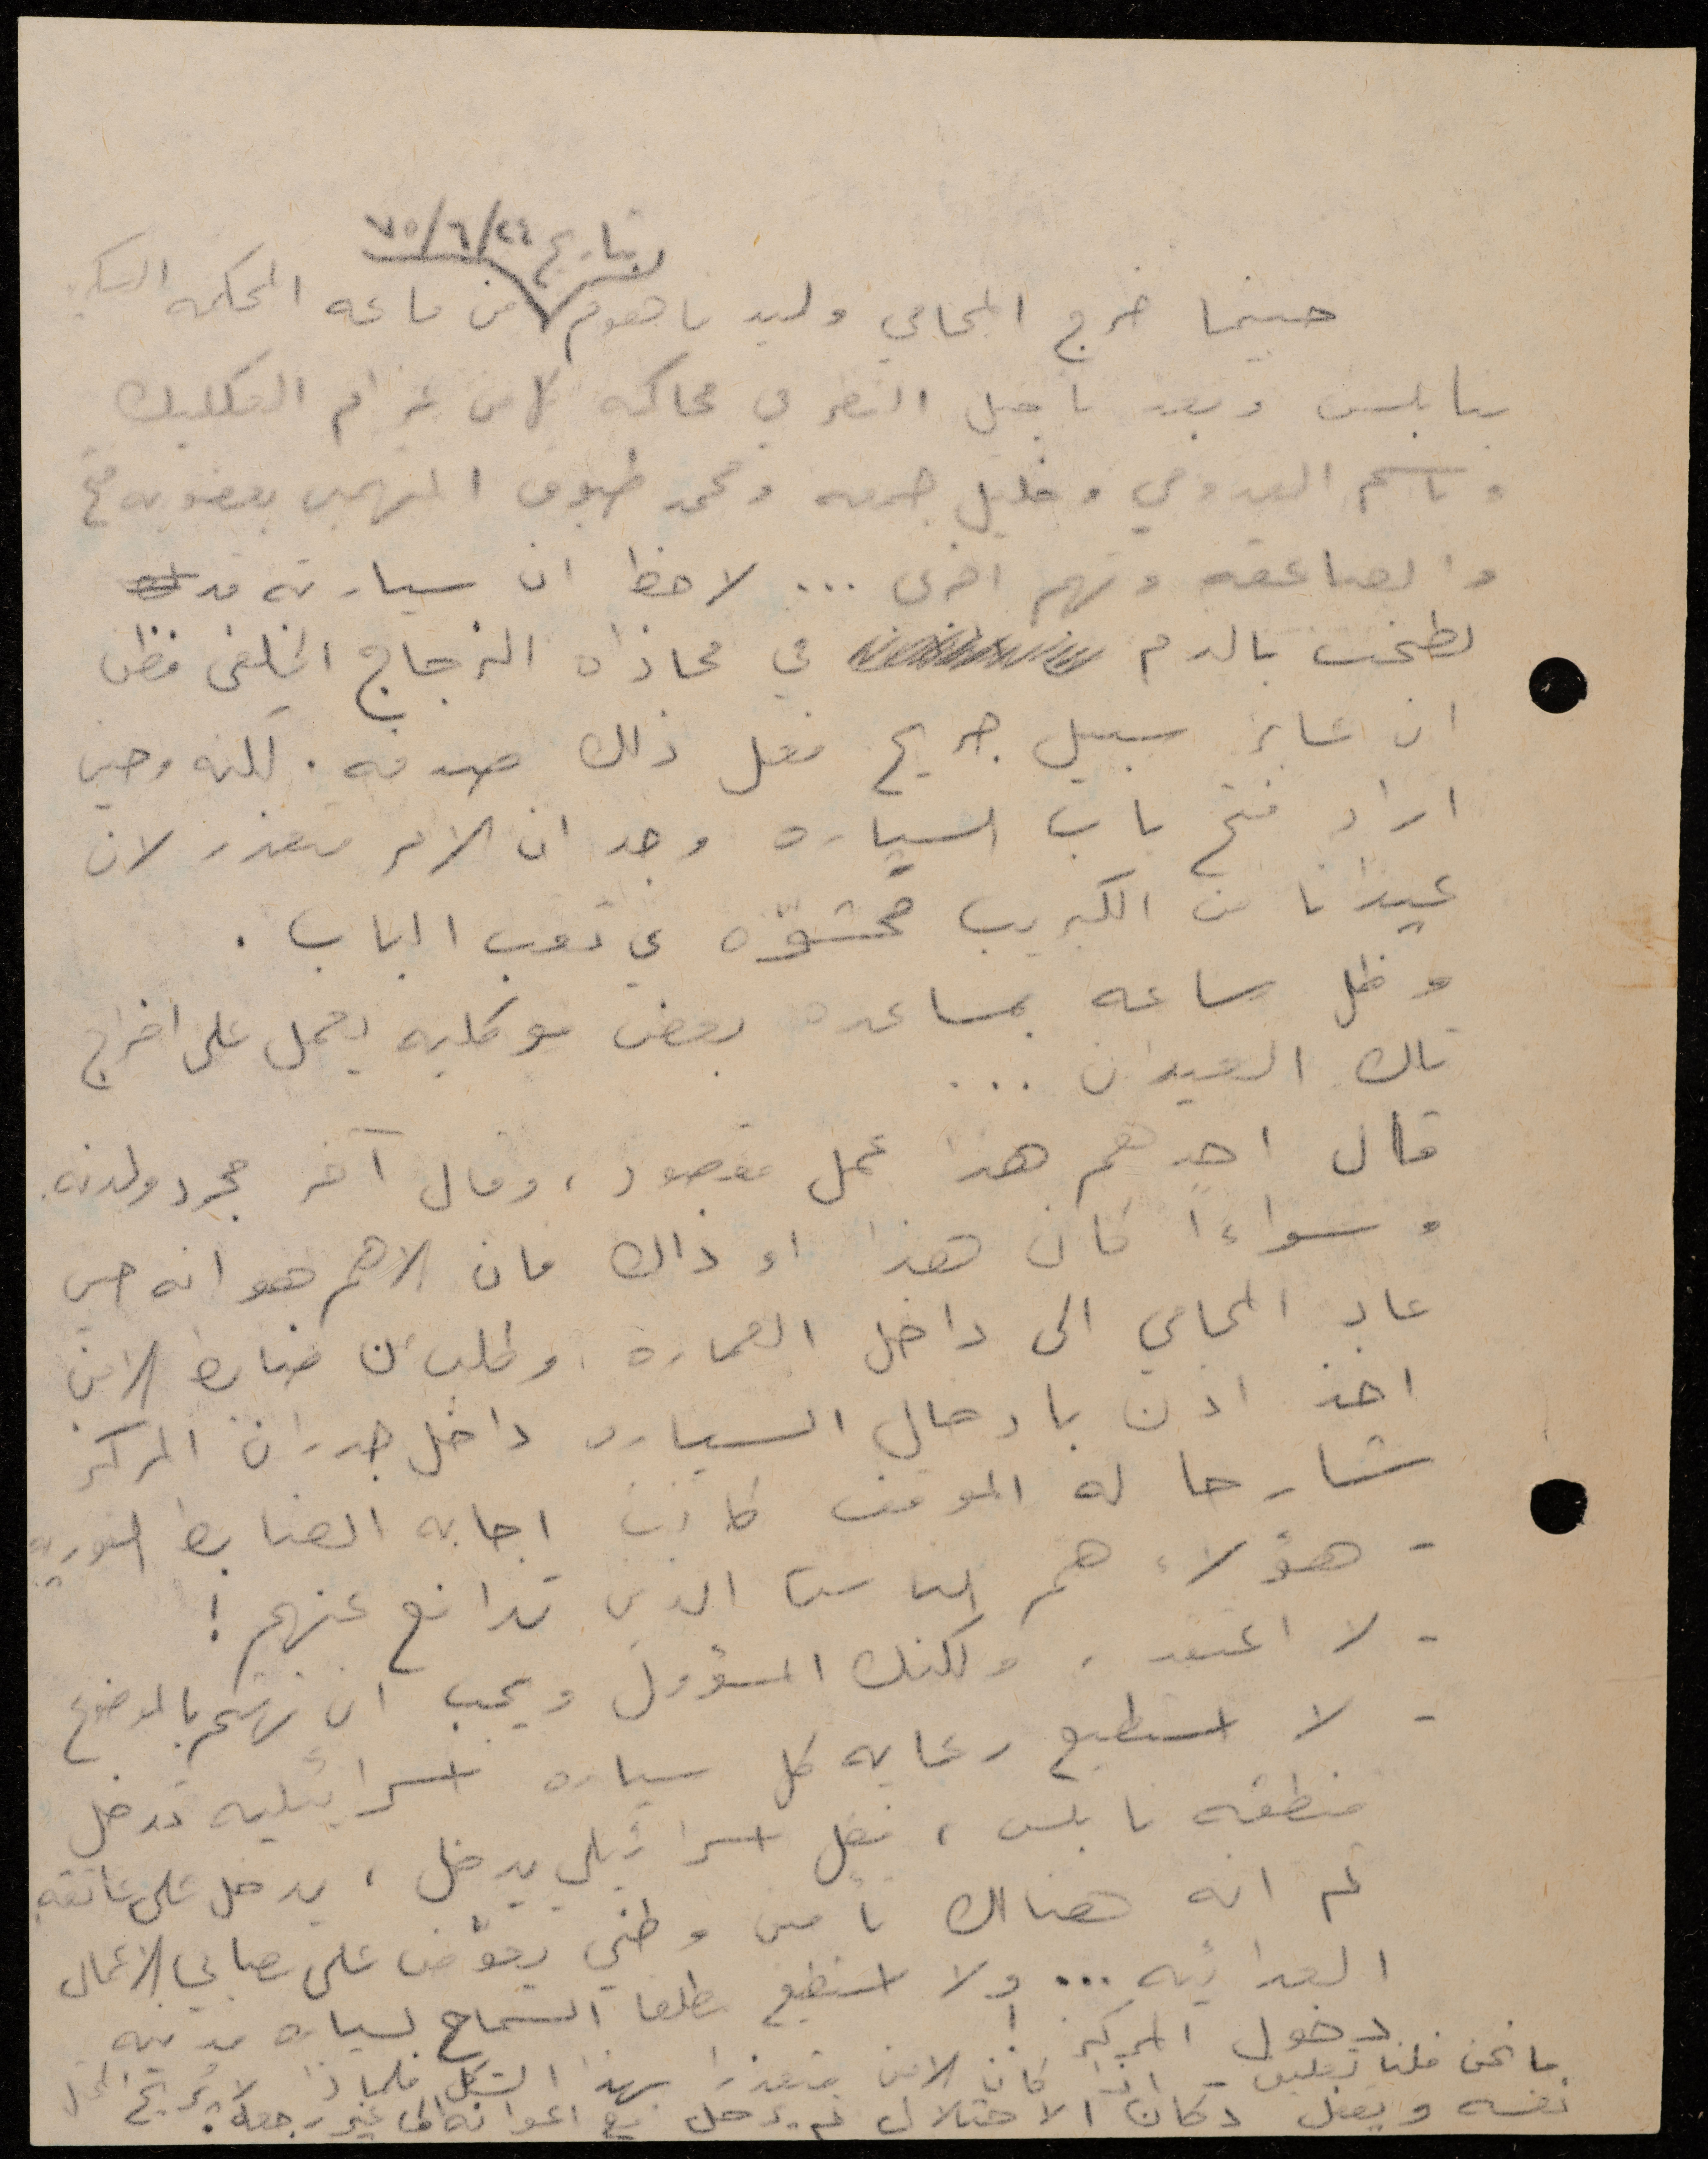 بتاريخ ٢٤/٦/٧٥
حينما خرج المحامي وليد ناهوم من قاعه المحكمه العسكريه
بنابلس وبعد تأجيل النظر في محاكمه كل من عزام
وباسم القدومي وخليل جمعه ومحمد طبوق المتهمين بعضويه فتح
والصاعقه وتهم اخرى ... لاحظ ان سيارته قد
لطخت بالدم في محاذاة الزجاج الخلفي فظن
ان عابر سبيل جريح فعل ذلك صدفه . لكنه وحين
اراد فتح باب السياره وجد ان الامر متعذر لان
عيدانا من الكبريت محشوّه في ثقب الباب .
وظل ساعه بمساعدة بعض موكليه يعمل على اخراج
تلك العيدان ...
قال احدهم هذا عمل مقصود ، وقال آخر مجرد ولدنه .
وسواءا كان هذا او ذاك فان الاهم هو انه حين
عاد المحامي الى داخل العماره وطلب من ضابط الامن
اخذ اذن بادخال السياره داخل جدران المركز
شارحا له الموقف كانت اجابه الضابط الفوريه
- هؤلاء هم الناس الذين تدافع عنهم !
- لا اعتقد ، ولكنك المسؤول ويجب ان تهتم بالموضوع
- لا استطيع رعايه كل سياره اسرائيليه تدخل
منطقه نابلس ، فكل اسرائيلي يدخل ، يدخل على عاتقه
ثم انه هنالك تأمين وطني يعوّض على مصابي الاعمال
العدائيه ... ولا استطيع مطلقا السماح لسياره مدنيه
دخول المركز !
ما نحن فلنا تعليق - اذا كان الامن متعذرا بهذا الشكل فلماذا لا يُريح المحتل
نفسه ويقفل دكان الاحتلال ثم يرحل مع اعوانه الى غير رجعه ؟